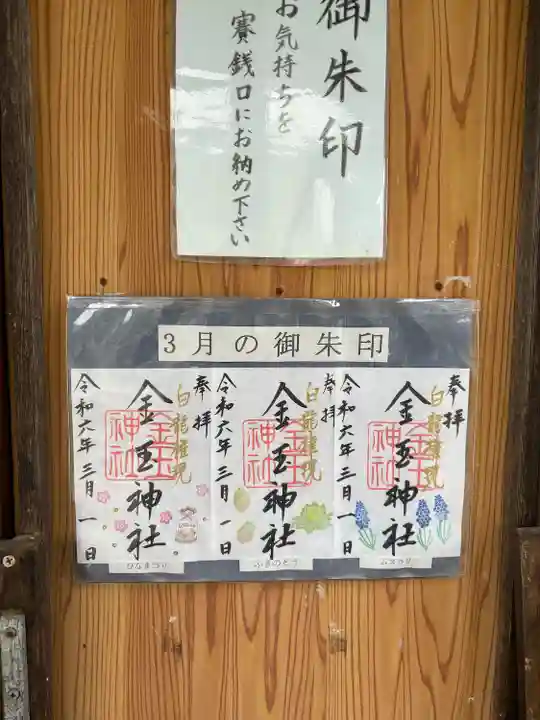 御朱印
お気持ちを
賽銭口にお納め下さい
3月の御朱印
奉拝
白龍権現
金玉神社
金玉神社
令和六年三月一日
ムスカリ
奉拝
白龍権現
金玉神社
金玉神社
令和六年三月一日
ふきのとう
奉拝
白龍権現
金玉神社
金玉神社
令和六年三月一日
ひなまつり